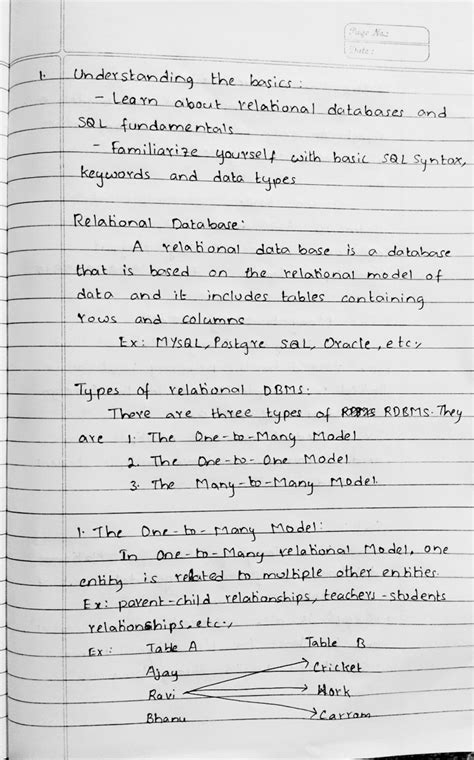 Page No.:
Date:
1. Understanding the basics:
- Learn about relational databases and
SQL fundamentals
- Familiarize yourself with basic SQL Syntax,
keywords and data types
Relational Database:
A relational data base is a database
that is based on the relational model of
data and it includes tables containing
rows and columns
Ex: MYSQL, Postgre SQL, Oracle, etc.,
Types of relational DBMS:
There are three types of RDBMS. They
are 1. The One-to-Many Model
2. The One-to-One Model
3. The Many-to-Many Model.
1. The One-to-Many Model:
In One-to-Many relational Model, one
entity is related to multiple other entities.
Ex: parent-child relationships, teachers-students
relationships, etc.,
Ex: Table A Table B
Ajay Cricket
Ravi Work
Bhanu Carrom